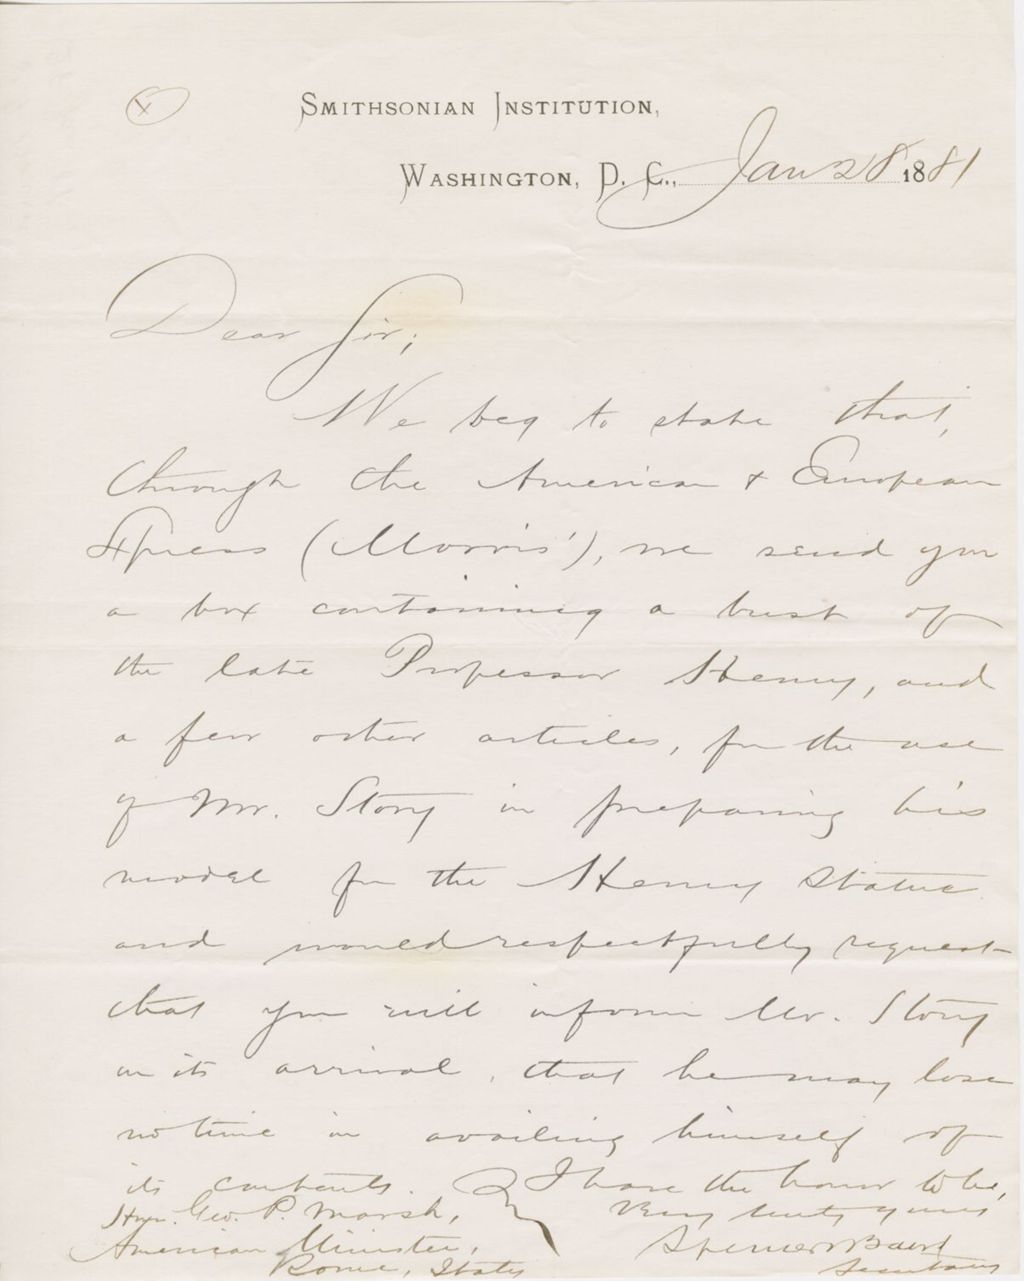 x
SMITHSONIAN INSTITUTION,
WASHINGTON, D. C., Jan 28 1881
Dear Sir;
We beg to state that,
through the American & European
Xpress (Morris'), we send you
a box containing a bust of
the late Professor Henry, and
a few other articles, for the use
of Mr. Story in preparing his
model for the Henry Statue
and would respectfully request
that you will inform Mr. Story
on its arrival, that he may lose
no time in availing himself of
its contents. I have the honor to be,
Hon. Geo. P. Marsh, Very truly yours
American Minister, Spencer Baird
Rome, Italy Secretary